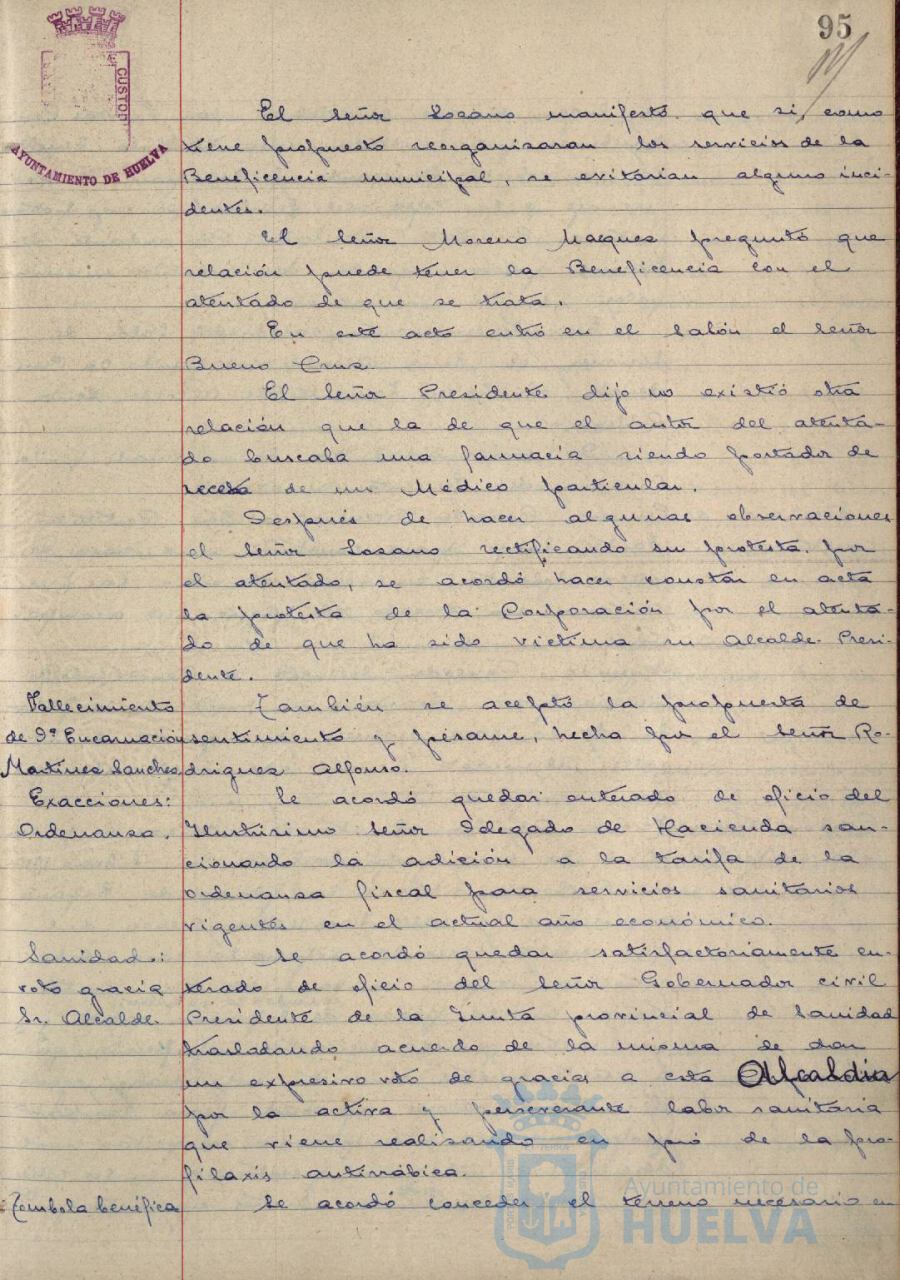 95
CUSTOD
AYUNTAMIENTO DE HUELVA
El Señor Lozano manifestó que si, como
tiene propuesto reorganizaran los servicios de la
Beneficencia municipal, se evitarian alguno inci-
dentes.
El Señor Moreno Marquez preguntó que
relación puede tener la Beneficencia con el
atentado de que se trata.
En este acto entró en el Salón el Señor
Bueno Cruz.
El Señor Presidente dijo no existió otra
relación que la de que el autor del atenta-
do buscaba una farmacia siendo portador de
receta de un Médico particular.
Después de hacer algunas observaciones
el Señor Lozano rectificando su protesta por
el atentado, se acordó hacer constar en acta
la protesta de la Corporación por el atenta-
do de que ha sido victima su Alcalde-Presi-
dente.
Fallecimiento
de Dª Encarnación
Martinez Sanchez
También se aceptó la propuesta de
sentimiento y pésame, hecha por el Señor Ro-
driguez Alfonso.
Exacciones:
Ordenanza.
Se acordó quedar enterado de oficio del
Ilustrisimo Señor Delegado de Hacienda san-
cionando la adición a la tarifa de la
ordenanza fiscal para servicios sanitarios
vigentes en el actual año económico.
Sanidad:
voto gracia
Sr. Alcalde.
Se acordó quedar satisfactoriamente en-
terado de oficio del Señor Gobernador civil
Presidente de la Junta provincial de Sanidad
trasladando acuerdo de la misma de dar
un expresivo voto de gracias a esta Alcaldia
por la activa y perseverante labor sanitaria
que viene realizando en pró de la pro-
filaxis antirrábica.
Tombola benéfica
Se acordó conceder el terreno necesario en
Ayuntamiento de
HUELVA